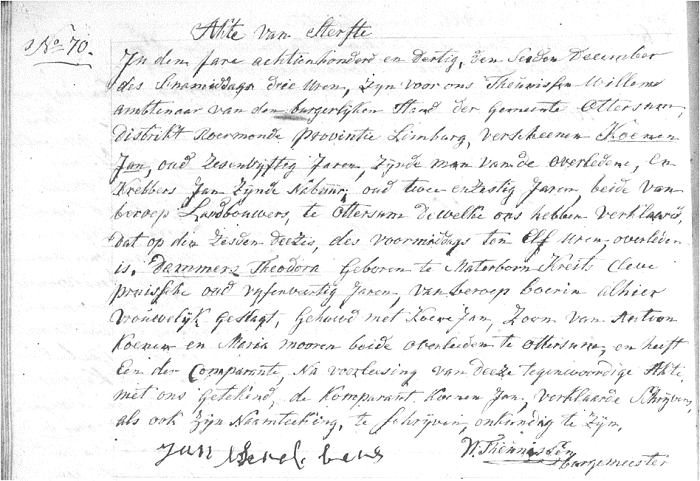 Akte van Sterfte
No 70.
In den Jare achtienhonderd en dertig, den Sesden December
des Snamiddags drie uren, Zyn voor ons Theunissen Willem
ambtenaar van den burgerlyken Stand der gemeente Ottersum,
distrikt Roermonde provintie Limburg, verscheenen Koenen
Jan, oud Zesenvyftig Jaren, Zynde man van de overledene, En
Krebbers Jan Zynde Nabuur, oud twee enzestig Jaren, beide van
beroep Landbouwers, te Ottersum dewelke ons hebben verklaard,
dat op den Zesden deezes, des voormiddags ten Elf uren, overleden
is, Dammers Theodora Geboren te Materborn Kreits Cleve
pruissche oud vyfenveertig Jaren, van beroep boerin alhier
vrouwelyk geslagt, Gehuwd met Koenen Jan, Zoon van Antoon
Koenen en Maria mooren beide overleeden te ottersum, en heeft
Een der Comparante, Na voorleesing van deeze tegenwoordige Akte
met ons getekend, de Komparant Koenen Jan, verklaarde Schryven,
als ook Zyn Naamteekening, te Schryven, onkundig te Zyn,
Jan
W. Theunissen
burgemeester